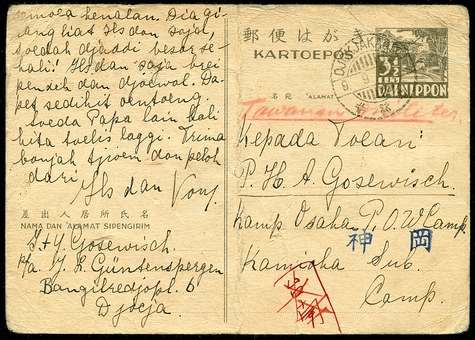 semoea kenalan. Dia gi-
ang liat Ils dan saja,
soedah djaddi besar se-
kali! Ils dan saja brei
pendek dan djoewal. Da-
pet sedikit oentoeng.
Soeda Papa lain kali
kita toelis laggi. Trima
banjak tjioem dan peloh
dari
Ils dan Vony.
差出人居所氏名
NAMA DAN ALAMAT SIPENGIRIM
I.+Y. Gosewisch.
p/a. Y. L. Güntensperger
Bangilredjopl. 6
Djocja.
郵便はがき
KARTOEPOS
名宛 ALAMAT
3½
CENT
DAI NIPPON
DJOKJAKARTA
Tawanan Militer
Kepada Toean
P. H. A. Gosewisch.
Kamp Osaka P.O.W. Camp.
神岡
Kamioka Sub.
Camp.